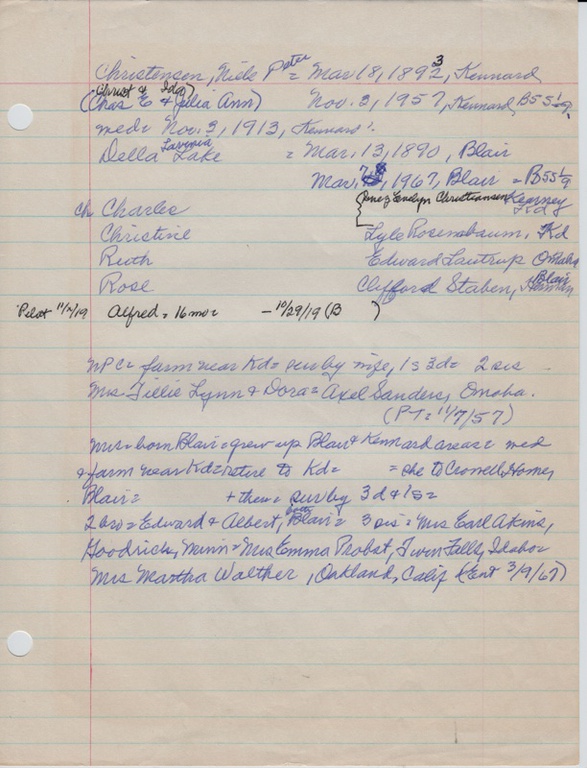 Christensen, Niels Peter = Mar 18, 1892 3, Kennard
Christ & Ida
(Chas E & Julia Ann) Nov. 3, 1957, Kennard, B55 1/9
med= Nov. 3, 1913, Kennard
Della Lavinia Lake = Mar. 13, 1890, Blair
Mar. 7 8, 1967, Blair = B55 1/9
ch Charles Inez Evelyn Christiansen Kearney Kd
Christine Lyle Rosenbaum, Kd
Ruth Edward Lautrup Omaha
Rose Clifford Staben, Blair Herman
Pilot 11/2/19 Alfred = 16 mo = - 10/29/19 (B )
NPC = farm near Kd = surv by wife, 1s 3d = 2 sis
Mrs Tillie Lynn & Dora = Axel Sanders, Omaha.
(P-T = 11/7/57)
Mrs = born Blair = grew up Blair & Kennard areas = med
& farm near Kd = retire to Kd = = she to Crowell Home,
Blair = + there = surv by 3d & 1s =
2 bro = Edward & Albert, both Blair = 3 sis = Mrs Earl Akins,
Goodrich, Minn = Mrs Emma Probst, Twin Falls, Idaho =
Mrs Martha Walther, Oakland, Calif (Ent 3/9/67)